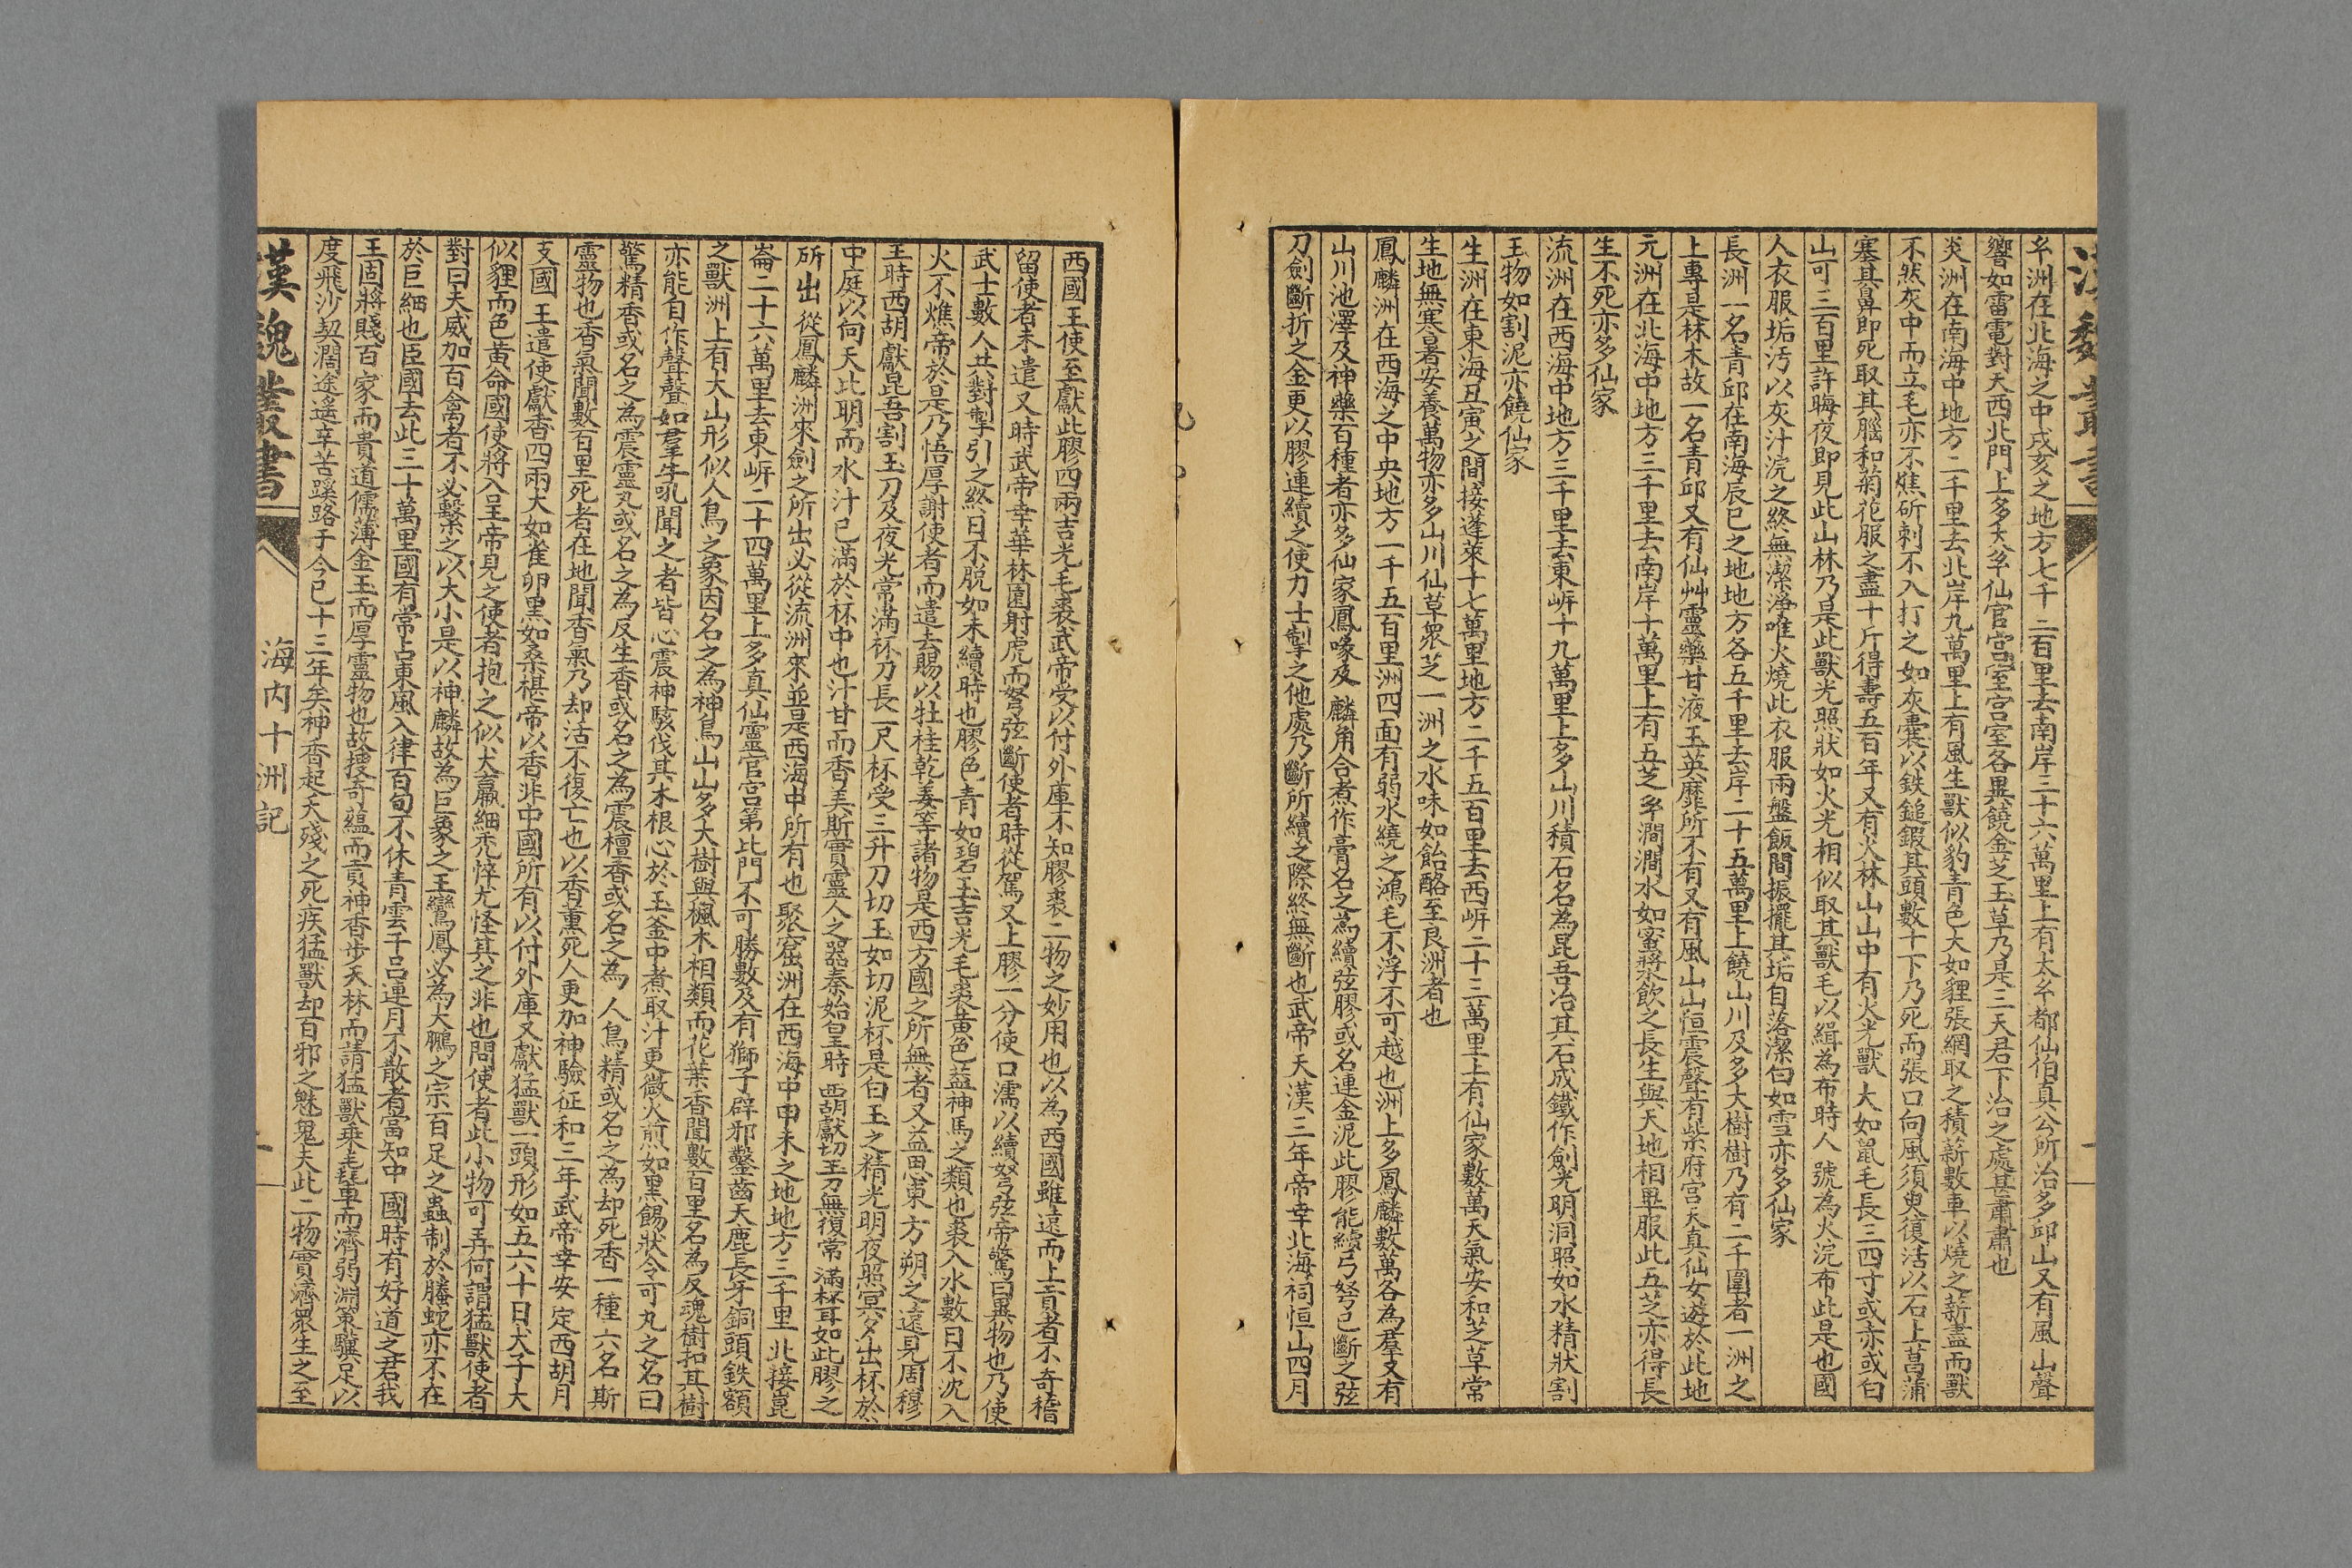 漢魏叢書
玄洲在北海之中戌亥之地方七千二百里去南岸三十六萬里上有太玄都仙伯真公所治多邱山又有風山聲
響如雷電對天西北門上多太玄仙官宮室宮室各異饒金芝玉草乃是三天君下治之處甚肅肅也
炎洲在南海中地方二千里去北岸九萬里上有風生獸似豹青色大如貍張網取之積薪數車以燒之薪盡而獸
不然灰中而立毛亦不燋斫刺不入打之如灰囊以鉄鎚鍛其頭數十下乃死而張口向風須臾復活以石上菖蒲
塞其鼻即死取其腦和菊花服之盡十斤得壽五百年又有火林山山中有火光獸大如鼠毛長三四寸或赤或白
山可三百里許晦夜即見此山林乃是此獸光照狀如火光相似取其獸毛以緝為布時人號為火浣布此是也國
人衣服垢汚以灰汁浣之終無潔淨唯火燒此衣服兩盤飯間振擺其垢自落潔白如雪亦多仙家
長洲一名青邱在南海辰巳之地地方各五千里去岸二十五萬里上饒山川及多大樹樹乃有二千圍者一洲之
上專是林木故一名青邱又有仙艸靈藥甘液玉英靡所不有又有風山山恒震聲有紫府宮天真仙女遊於此地
元洲在北海中地方三千里去南岸十萬里上有五芝玄澗澗水如蜜漿飲之長生與天地相畢服此五芝亦得長
生不死亦多仙家
流洲在西海中地方三千里去東岍十九萬里上多山川積石名為昆吾冶其石成鐵作劍光明洞照如水精狀割
玉物如割泥亦饒仙家
生洲在東海丑寅之間接蓬萊十七萬里地方二千五百里去西岍二十三萬里上有仙家數萬天氣安和芝草常
生地無寒暑安養萬物亦多山川仙草衆芝一洲之水味如飴酪至良洲者也
鳳麟洲在西海之中央地方一千五百里洲四面有弱水繞之鴻毛不浮不可越也洲上多鳳麟數萬各為羣又有
山川池澤及神藥百種者亦多仙家鳳喙及麟角合煮作膏名之為續弦膠或名連金泥此膠能續弓弩已斷之弦
刀劍斷折之金更以膠連續之使力士掣之他處乃斷所續之際終無斷也武帝天漢三年帝幸北海祠恒山四月
西國王使至獻此膠四兩吉光毛裘武帝受以付外庫不知膠裘二物之妙用也以為西國雖遠而上貢者不奇稽
留使者未遣又時武帝幸華林園射虎而弩弦斷使者時從駕又上膠一分使口濡以續弩弦帝驚曰異物也乃使
武士數人共對掣引之終日不脫如未續時也膠色青如碧玉吉光毛裘黃色葢神馬之類也裘入水數日不沈入
火不燋帝於是乃悟厚謝使者而遣去賜以牡桂乾姜等諸物是西方國之所無者又益思東方朔之遠見周穆
王時西胡獻昆吾割玉刀及夜光常滿杯刀長一尺杯受三升刀切玉如切泥杯是白玉之精光明夜照冥夕出杯於
中庭以向天比明而水汁已滿於杯中也汁甘而香美斯實靈人之器秦始皇時西胡獻切玉刀無復常滿杯耳如此膠之
所出從鳳麟洲來劍之所出必從流洲來並是西海中所有也聚窟洲在西海中申未之地地方三千里北接崑
崙二十六萬里去東岍二十四萬里上多真仙靈官宮第比門不可勝數及有獅子辟邪鑿齒天鹿長牙銅頭鉄額
之獸洲上有大山形似人鳥之象因名之為神鳥山山多大樹與楓木相類而花葉香聞數百里名為反魂樹扣其樹
亦能自作聲聲如羣牛吼聞之者皆心震神駭伐其木根心於玉釜中煮取汁更微火煎如黑餳狀令可丸之名曰
驚精香或名之為震靈丸或名之為反生香或名之為震檀香或名之為人鳥精或名之為却死香一種六名斯
靈物也香氣聞數百里死者在地聞香氣乃却活不復亡也以香薰死人更加神驗征和三年武帝幸安定西胡月
支國王遣使獻香四兩大如雀卵黑如桑椹帝以香非中國所有以付外庫又獻猛獸一頭形如五六十日犬子大
似貍而色黃命國使將入呈帝見之使者抱之似犬羸細禿悴尤怪其之非也問使者此小物可弄何謂猛獸使者
對曰夫威加百禽者不必繫之以大小是以神麟故為巨象之王鸞鳳必為大鵬之宗百足之蟲制於螣蛇亦不在
於巨細也臣國去此三十萬里國有常占東風入律百旬不休青雲干呂連月不散者當知中國時有好道之君我
王固將賤百家而貴道儒薄金玉而厚靈物也故搜奇蘊而貢神香步天林而請猛獸乗毳車而濟弱淵策驥足以
度飛沙契濶途遙辛苦蹊路于今已十三年矣神香起夭殘之死疾猛獸却百邪之魅鬼夫此二物實濟衆生之至
漢魏叢書
海内十洲記